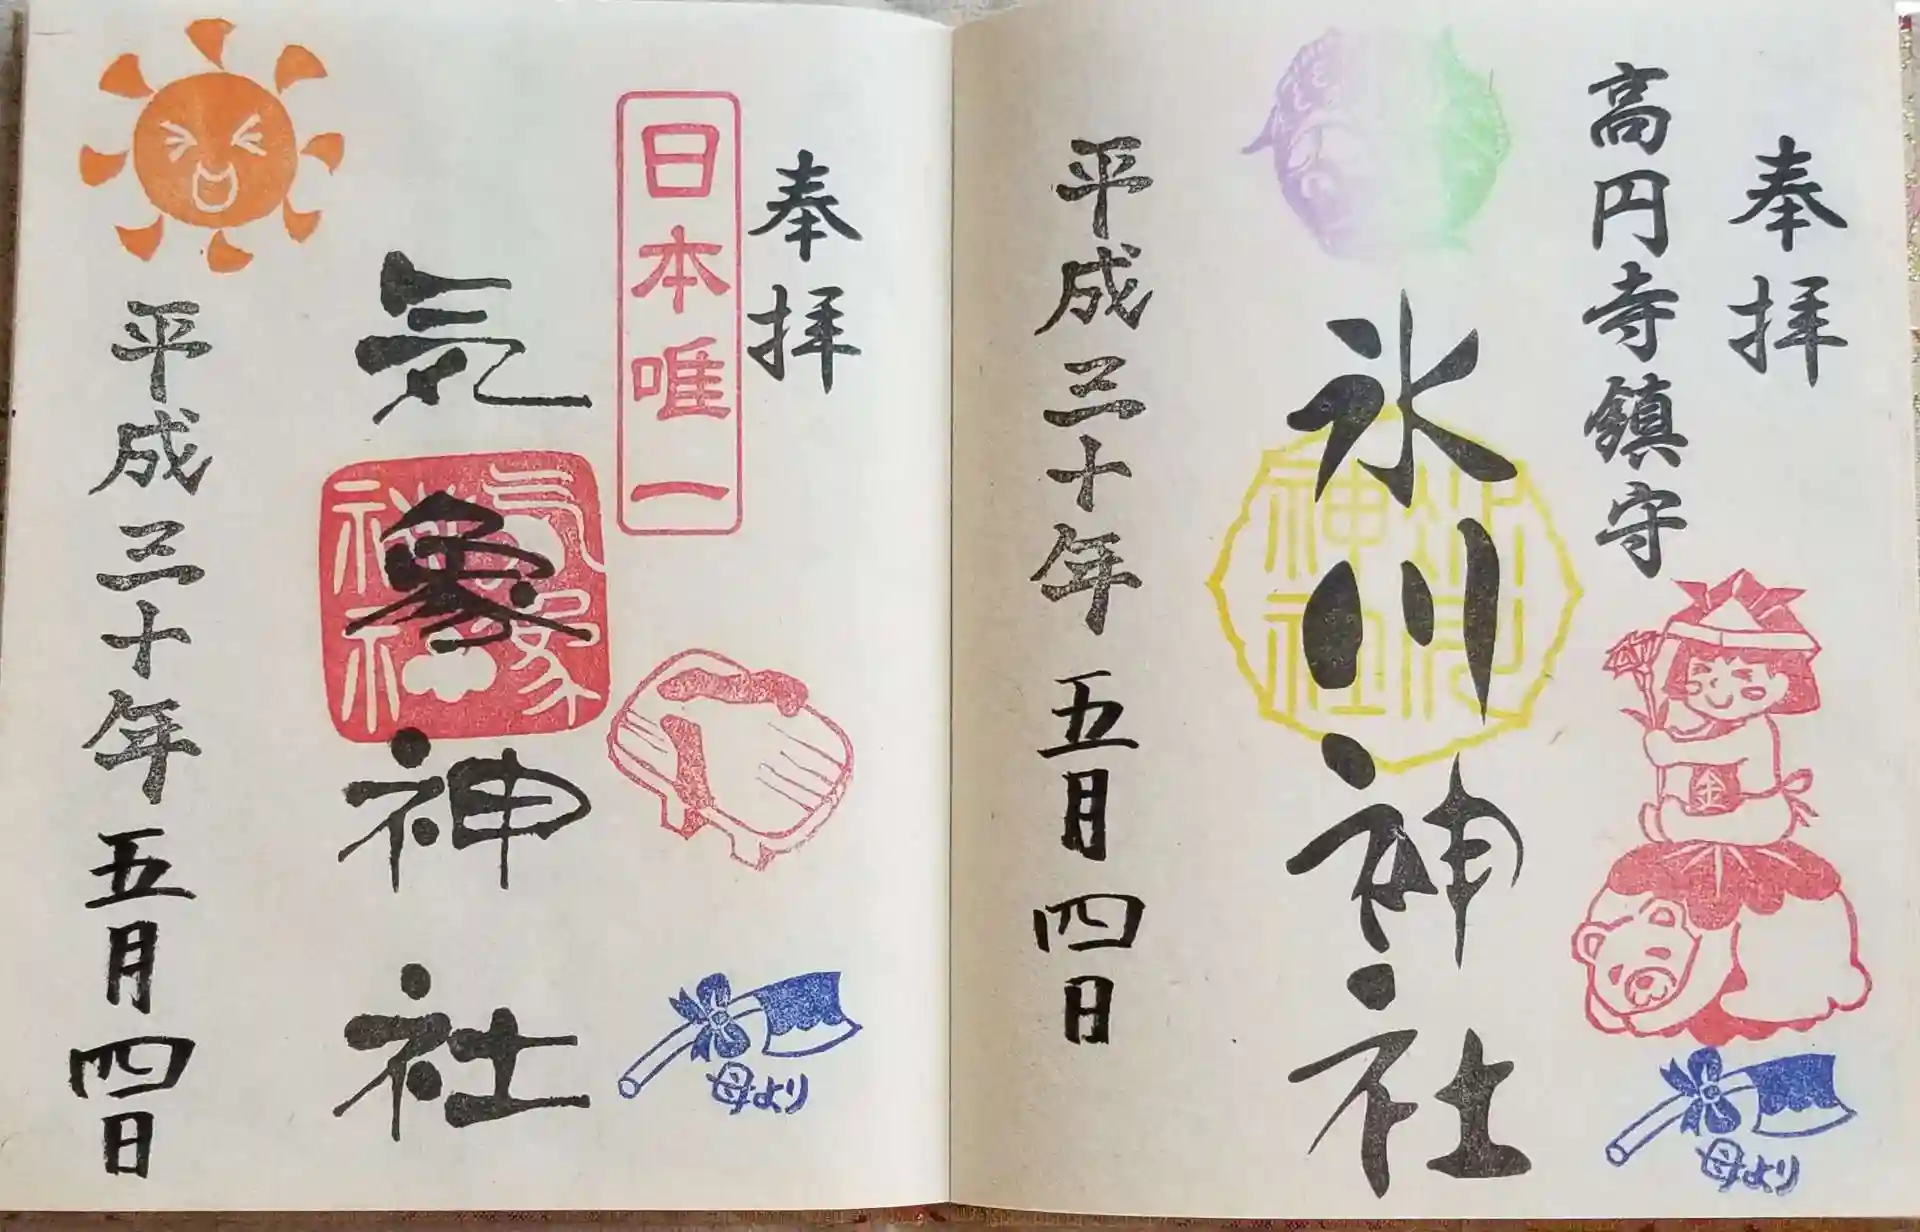 奉拝
高円寺鎮守
金
母より
氷川神社
氷川神社
平成三十年五月四日
奉拝
日本唯一
母より
気象神社
気象神社
平成三十年五月四日